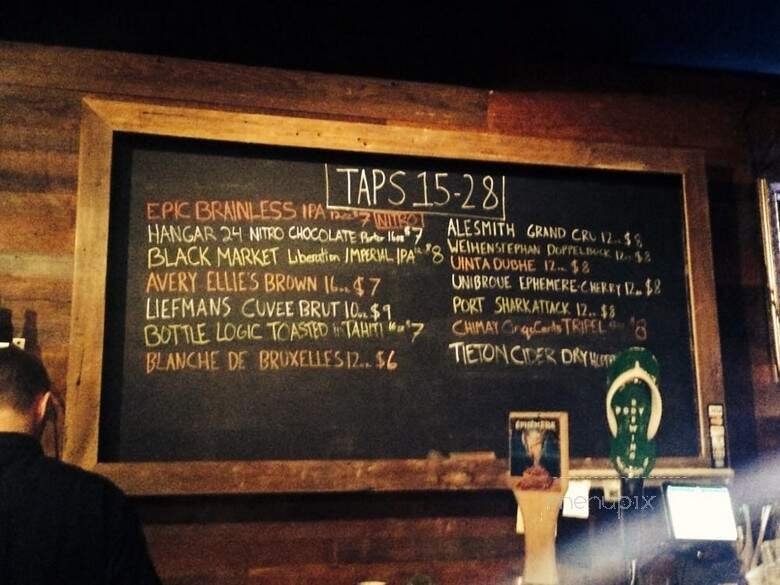 TAPS 15-28
EPIC BRAINLESS IPA 12oz $7 NITRO
HANGAR 24 NITRO CHOCOLATE Porter 16oz $7
BLACK MARKET Liberation IMPERIAL IPA $8
AVERY ELLIE'S BROWN 16oz $7
LIEFMANS CUVEE BRUT 10oz $9
BOTTLE LOGIC TOASTED in TAHITI $7
BLANCHE DE BRUXELLES 12oz $6
ALESMITH GRAND CRU 12oz $8
WEIHENSTEPHAN DOPPELBOCK 12oz $8
UINTA DUBHE 12oz $8
UNIBROUE EPHEMERE-CHERRY 12oz $8
PORT SHARKATTACK 12oz $8
CHIMAY Cinq Cents TRIPEL $8
TIETON CIDER DRY
EPHEMERE
BREWING
menupix